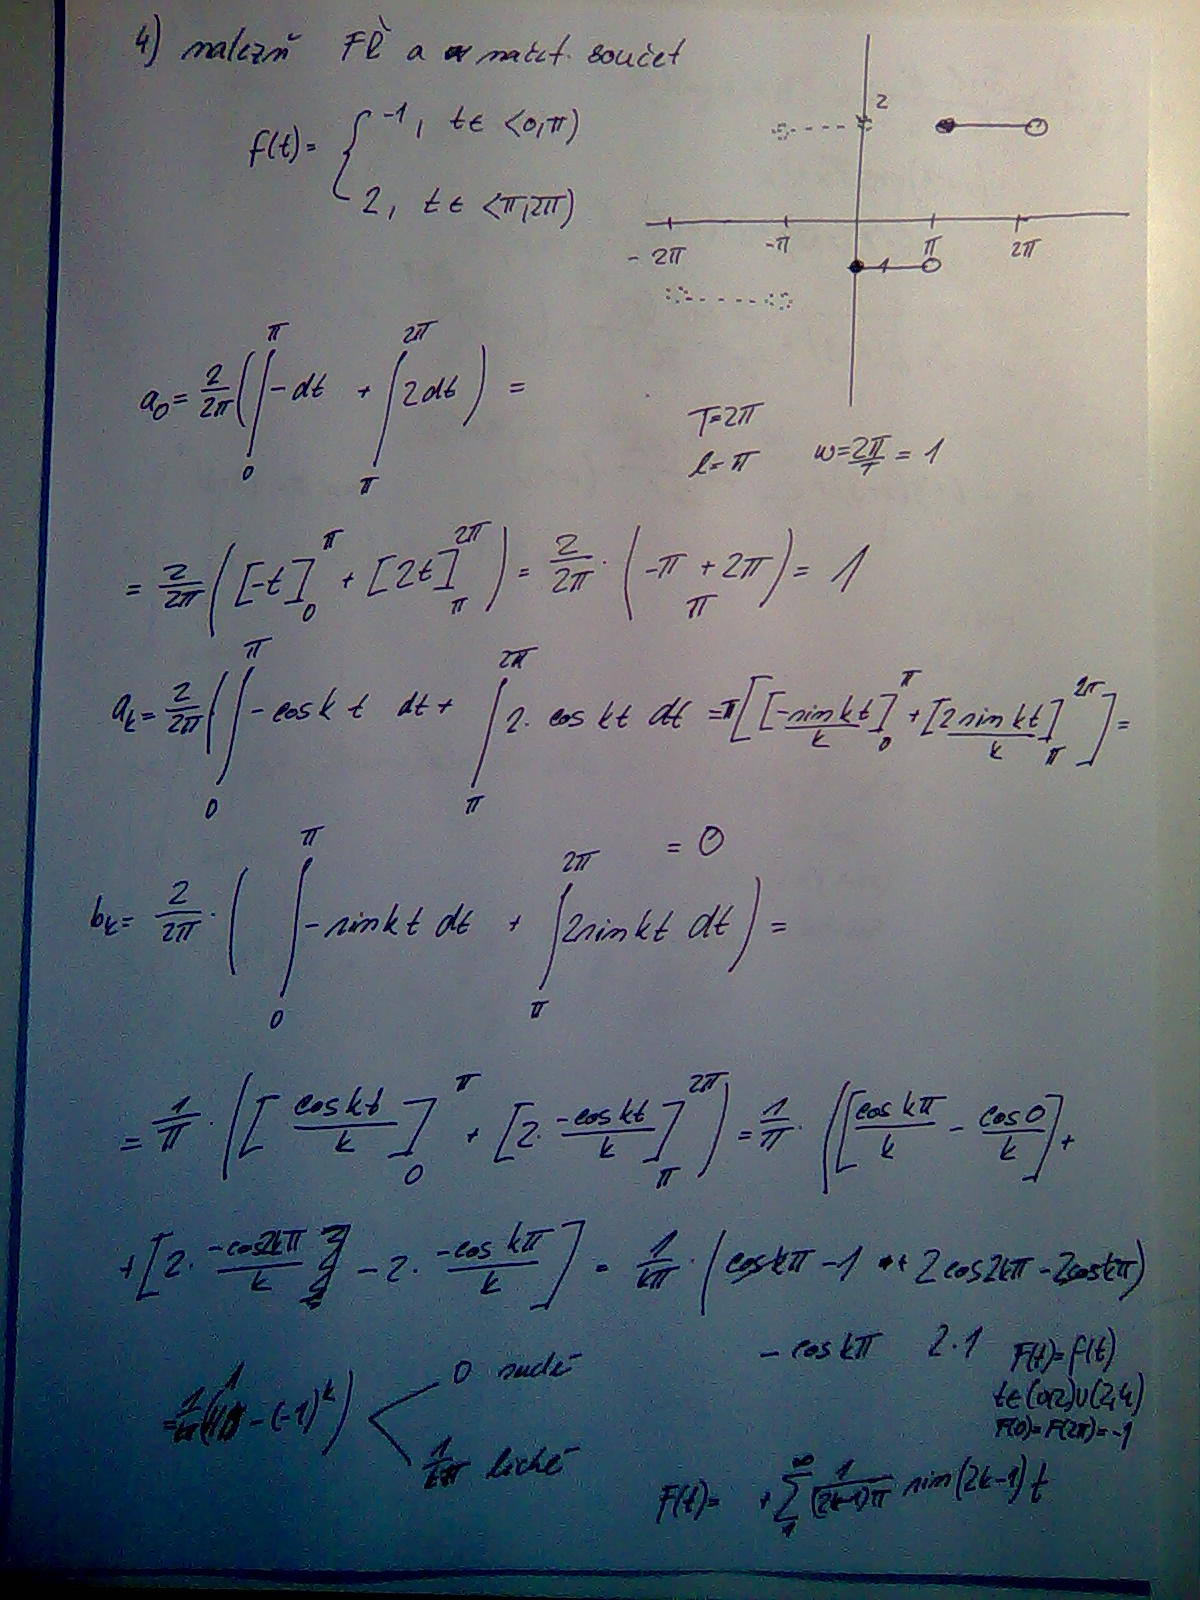 4) nalezň FŘ a načrt. součet
f(t)= { -1, t∈ <0,π)
2, t∈ <π,2π)
2
-2π -π π 2π
-1
a₀= 2/2π ( ∫₀^π -dt + ∫_π^2π 2dt ) =
T=2π
l=π w=2π/T = 1
= 2/2π ( [-t]₀^π + [2t]_π^2π ) = 2/2π · ( -π + 2π ) = 1
π
aₖ= 2/2π ( ∫₀^π - cos k t dt + ∫_π^2π 2. cos kt dt = π [ [-sin kt/k]₀^π + [2 sin kt/k]_π^2π ] =
= 0
bₖ= 2/2π · ( ∫₀^π - sin k t dt + ∫_π^2π 2 sin kt dt ) =
= 1/π · ( [ cos kt/k ]₀^π + [ 2· -cos kt/k ]_π^2π ) = 1/π · ( [ cos kπ/k - cos 0/k ] +
+ [ 2· -cos2kπ/k - 2· -cos kπ/k ] = 1/kπ · ( cos kπ -1 + 2 cos2kπ - 2coskπ )
- cos kπ 2·1
- (-1)^k ) < 0 sudé
1/kπ liché
F(t)= f(t)
t∈(0,2)∪(2,4)
F(0)= F(2π)= -1
F(t)= + ∑₁^∞ 1/(2k-1)π sin(2k-1) t